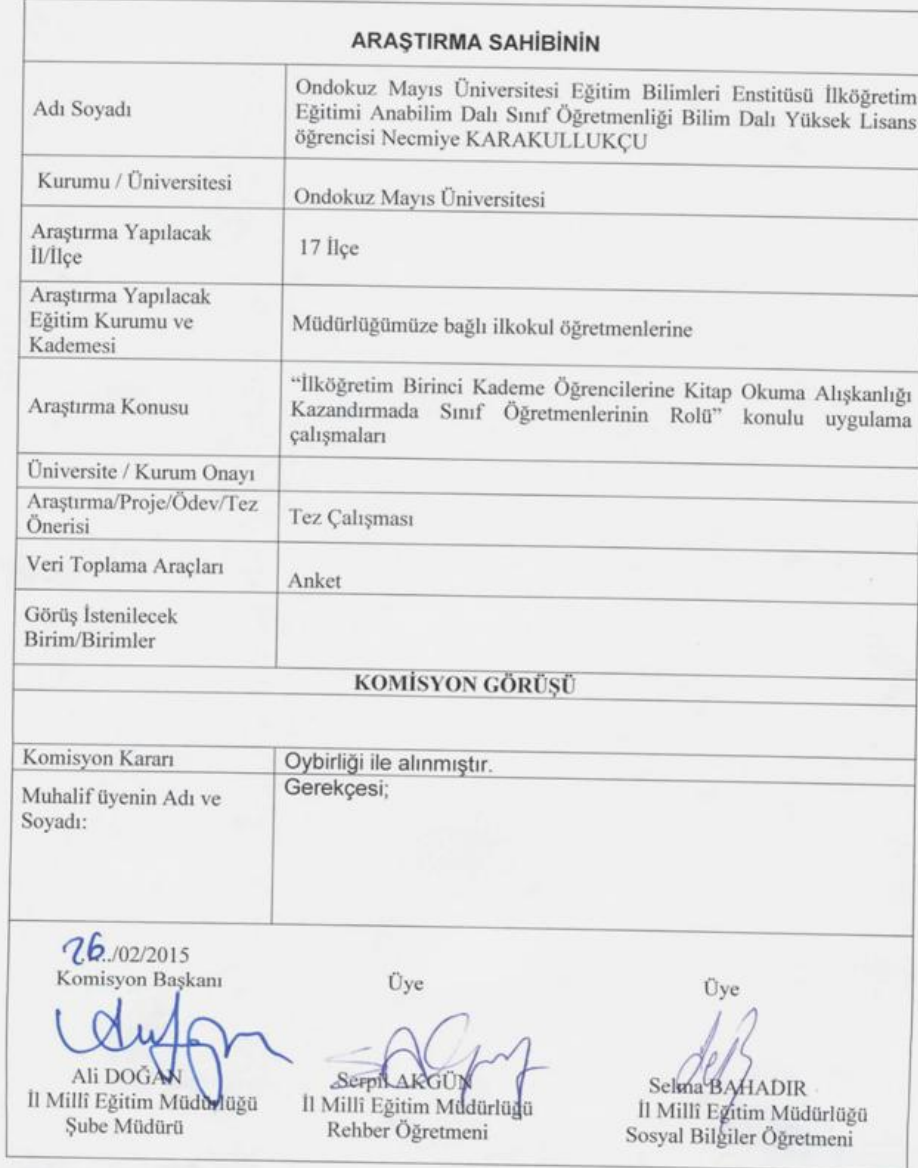 ARAŞTIRMA SAHİBİNİN
Adı Soyadı
Ondokuz Mayıs Üniversitesi Eğitim Bilimleri Enstitüsü İlköğretim
Eğitimi Anabilim Dalı Sınıf Öğretmenliği Bilim Dalı Yüksek Lisans
öğrencisi Necmiye KARAKULLUKÇU
Kurumu / Üniversitesi
Ondokuz Mayıs Üniversitesi
Araştırma Yapılacak
İl/İlçe
17 İlçe
Araştırma Yapılacak
Eğitim Kurumu ve
Kademesi
Müdürlüğümüze bağlı ilkokul öğretmenlerine
Araştırma Konusu
“İlköğretim Birinci Kademe Öğrencilerine Kitap Okuma Alışkanlığı
Kazandırmada Sınıf Öğretmenlerinin Rolü” konulu uygulama
çalışmaları
Üniversite / Kurum Onayı
Araştırma/Proje/Ödev/Tez
Önerisi
Tez Çalışması
Veri Toplama Araçları
Anket
Görüş İstenilecek
Birim/Birimler
KOMİSYON GÖRÜŞÜ
Komisyon Kararı
Oybirliği ile alınmıştır.
Muhalif üyenin Adı ve
Soyadı:
Gerekçesi;
26../02/2015
Komisyon Başkanı
Ali DOĞAN
İl Millî Eğitim Müdürlüğü
Şube Müdürü
Üye
Serpil AKGÜN
İl Millî Eğitim Müdürlüğü
Rehber Öğretmeni
Üye
Selma BAHADIR
İl Millî Eğitim Müdürlüğü
Sosyal Bilgiler Öğretmeni